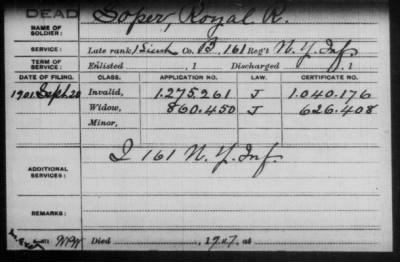 DEAD
NAME OF SOLDIER: Soper, Royal R.
SERVICE: Late rank, 1 Lieut Co. B, 161 Reg't N.Y. Inf
TERM OF SERVICE: Enlisted , 1 Discharged , 1
DATE OF FILING. CLASS. APPLICATION NO. LAW. CERTIFICATE NO.
1901. Sept. 20 Invalid, 1.275.261 J 1.040.176
Widow, 860.450 J 626.408
Minor,
ADDITIONAL SERVICES: I 161 N.Y. Inf.
REMARKS:
Died , 1907. at